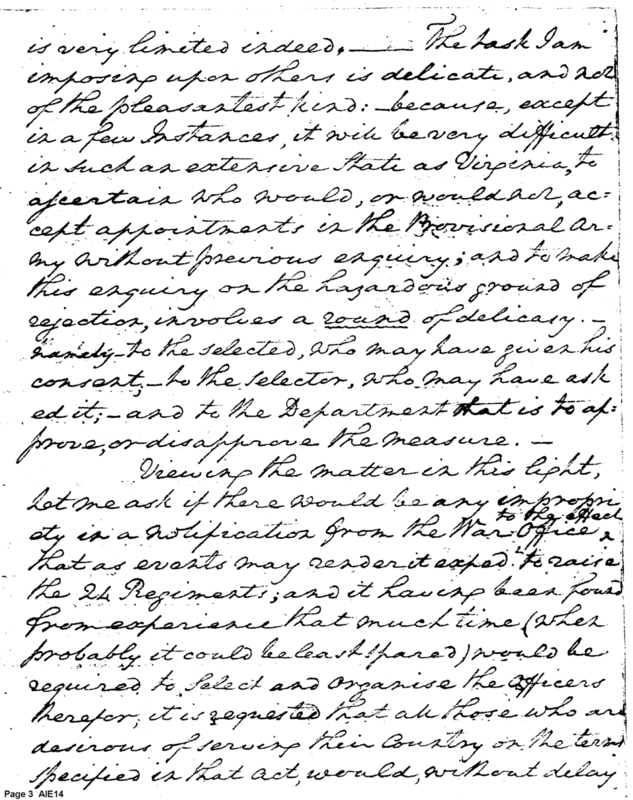 is very limited indeed. — The task I am
imposing upon others is delicate, and not
of the pleasantest kind: — because, except
in a few Instances, it will be very difficult
in such an extensive State as Virginia, to
ascertain who would, or would not, ac=
cept appointments in the Provisional Ar=
my without previous enquiry; and to make
this enquiry on the hazardous ground of
rejection, involves a round of delicasy. —
namely — to the selected, who may have given his
consent, — to the selector, who may have ask
ed it; — and to the Department that is to ap=
prove, or disapprove the measure. —
Viewing the matter in this light,
let me ask if there would be any impropri
to the effect
ety in a notification from the War Office,
that as events may render it exped.t to raise
the 24 Regiments; and it having been found
from experience that much time (when
probably it could be least spared) would be
required to select and organise the Officers
therefor, it is requested that all those who are
desirous of serving their Country on the terms
specified in that Act, would, without delay
Page 3 AIE14